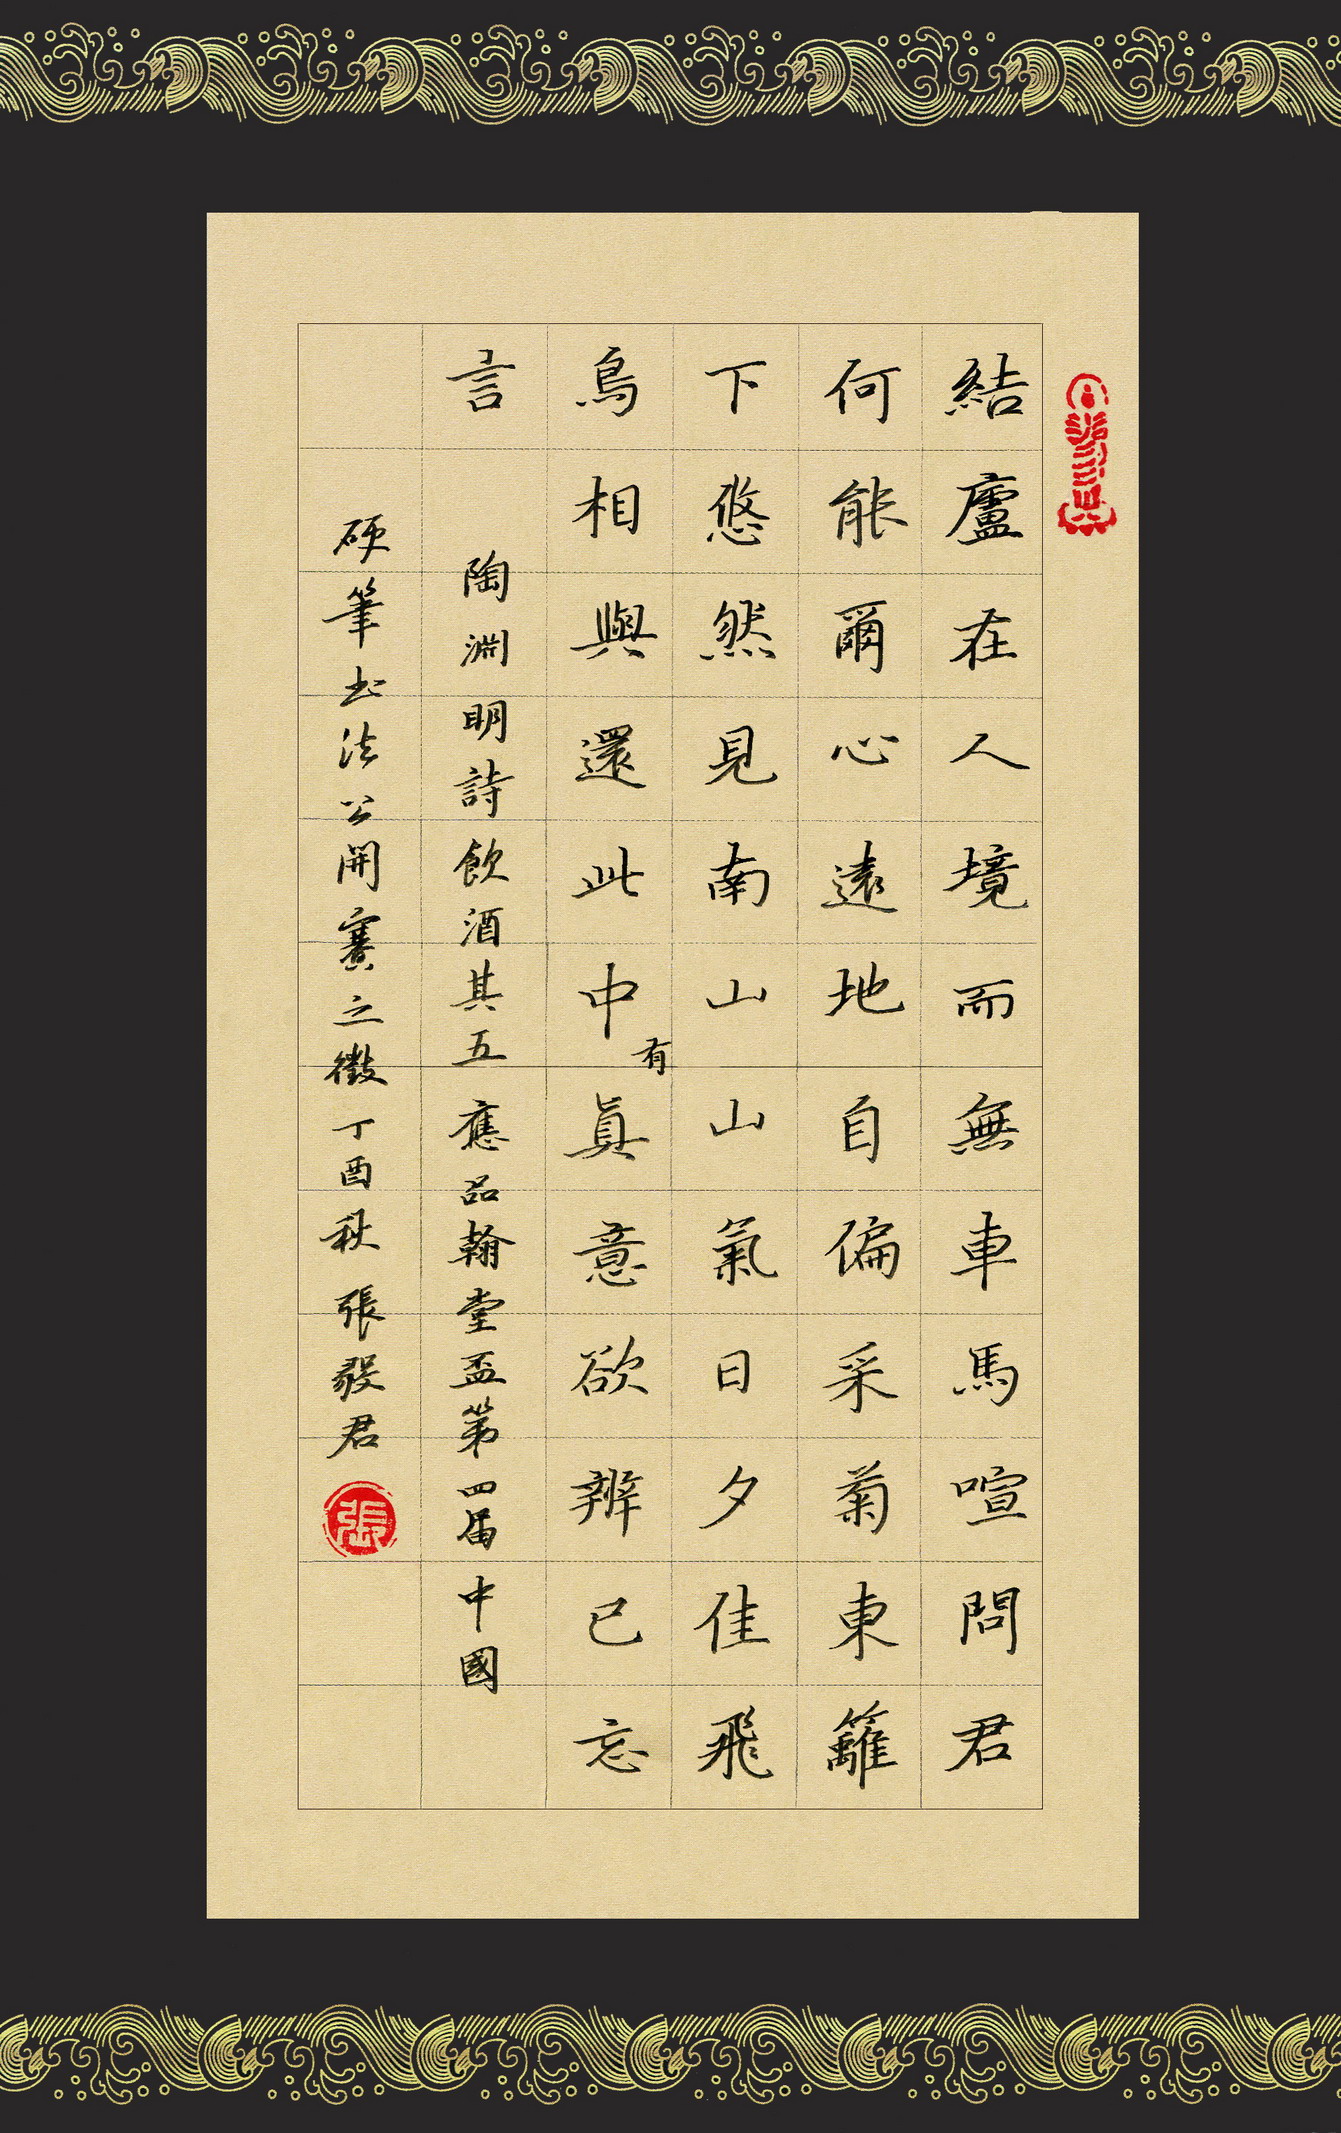 結廬在人境而無車馬喧問君
何能爾心遠地自偏采菊東籬
下悠然見南山山氣日夕佳飛
鳥相與還此中有真意欲辨已忘
言
陶淵明詩飲酒其五應品翰堂盃第四届中國
硬筆书法公開賽之徵丁酉秋張毅君
張